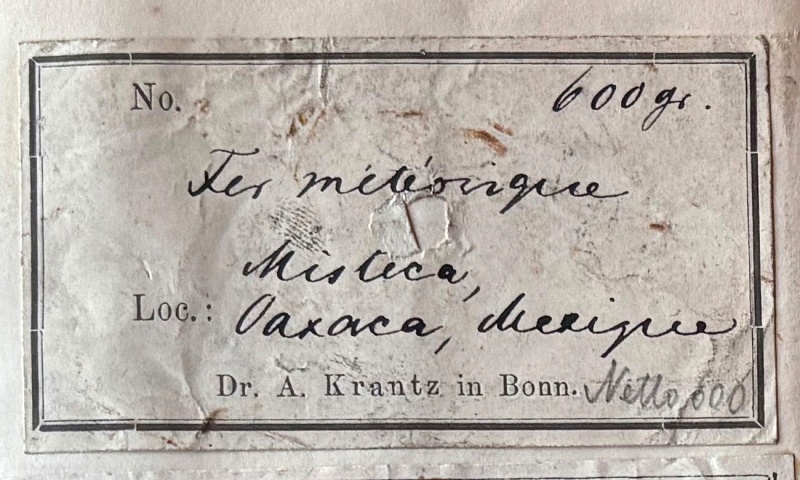 No. 600 gr.
Fer météorique
Misteca,
Loc.: Oaxaca, Mexique
Dr. A. Krantz in Bonn. Netto 600